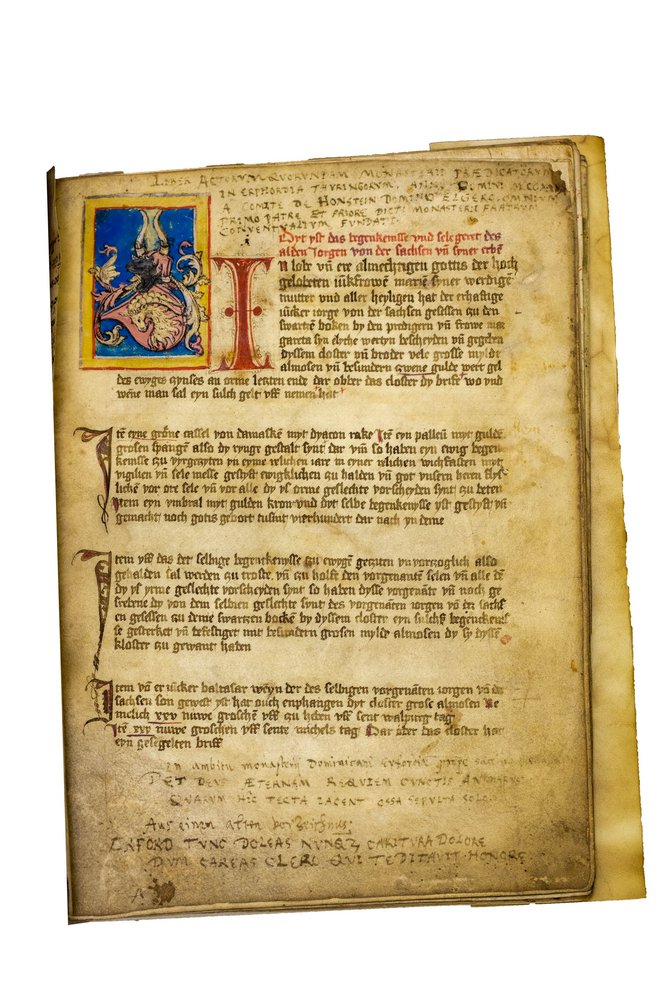 LIBER ACTORVM QVORVNDAM MONASTERII PRÆDICATORVM
IN ERPHORDIA THVRINGORVM, ANNO DOMINI
A COMITE DE HONSTEIN DOMINO ELGERO, OMNIVM
PRIMO PATRE ET PRIORE DICTI MONASTERII FRATRVM
CONVENTVALIVM FVNDATI.
Dyt yst das begenkenisse vnd selegerete des
alden Jorgen von der sachsen vñ syner erbẽ
IN lobe vñ ere almechtigen gottis der hoch
gelobeten iũkfrowẽ mariẽ syner werdige
mutter vnd aller heyligen hat der erhaftige
iũcker iorge von der sachsen gesessen zu den
swartẽ boken by den predigern vñ frowe mar
gareta syn elyche wertyn bescheyden vñ gegebẽ
dyssem closter vñ bruder vele grosse myldt
almosen vñ besundern zwene guldẽ wert gel
des ewyges zynses an orme lexten ende dar obber das closter dy brife wo vnd
wẽne man sal eyn sulch gelt vff nemen hat
Itẽ eyne grõne cassel von damaskẽ myt dyacon rake Itẽ eyn palleñ myt guldẽ
grosen spangẽ also dy ryuge gestalt synt dar vm̃ so haben eyn ewig begen
kenisse zu vyrgezyten yn eyme iclichen iare in eyner iclichen wichfasten myt
vigilien vñ sele messe gestyft ewigklichen zu halden vñ got vnsern heren flys
lichẽ vor ore sele vñ vor alle dy ys orme geslechte vorscheyden synt zu beten
Item eyn vmbral myt gulden kron vnd dyt selbe begenkenisse yst gestyft vñ
gemacht noch gotis gebort tusint vierhundert dar nach yn deme
Item vff das det selbige begenkenysse zu ewygẽ gezyten vnvorzoglich also
gehalden sal werden zu troste vñ zu holfe den vorgenantẽ selen vñ alle dẽ
dy ys yrme geslechte vorscheyden synt so haben dysse vorgenãte vñ noch ge
srebene dy von dem selbien geslechte synt des vorgenãten iorgen võ der sachs
en gesessen zu deme swartzen bockẽ by dyssem closter eyn sulchs begenckenis
se gesterket vñ befestiget mit besundern grosen mylde almosen dy sy dyssẽ
kloster zu gewant haben
Item võ er iũcker baltasar weyn der des selbigen vorgenãten iorgen võ der
sachsen son gewest yst hat ouch enphangen dyt closter grose almosen Ne
melich xxv nuwe groschẽ vff zu heben vff sent walpurg tag
Itẽ xxv nuwe groschen vff sente michels tag Dar ober das closter hat
eyn gesegelten briff
In ambitu monasterij Dominicani
DET DEVS ÆTERNAM REQVIEM CVNCTIS ANIMABVS
QVARVM HIC TECTA IACENT OSSA SEPVLTA SOLO
Aus einem alten
ERFORD TVNC DOLEAS NVNQZ CARITVRA DOLORE
DVM CAREAS CLERO QVI TE DITAVIT HONORE
A